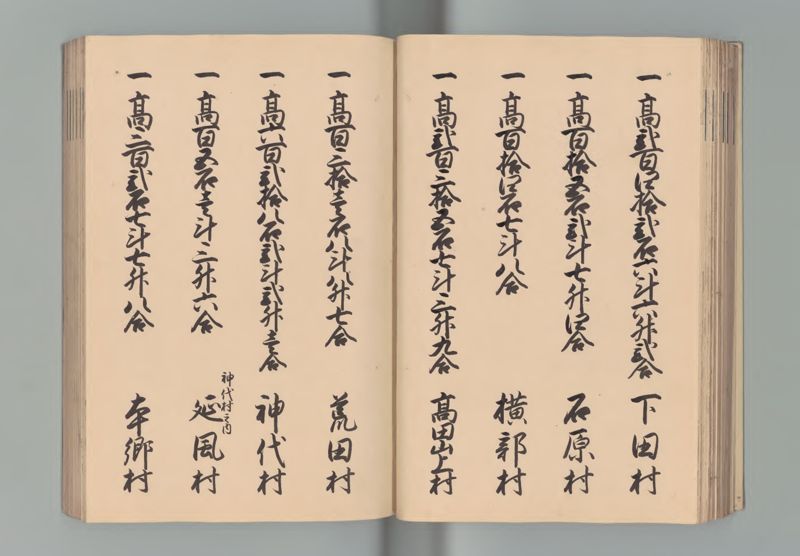 一 高弐百四拾弐石六斗六升弐合 下田村
一 高百拾五石弐斗七升四合 石原村
一 高百拾四石七斗八合 横部村
一 高弐百三拾五石七斗三升九合 高田山上村
一 高百三拾壱石八斗八升七合 荒田村
一 高六百弐拾八石弐斗弐升壱合 神代村
神代村之内
一 高百五石壱斗三升六合 延風村
一 高三百弐石七斗七升八合 本郷村